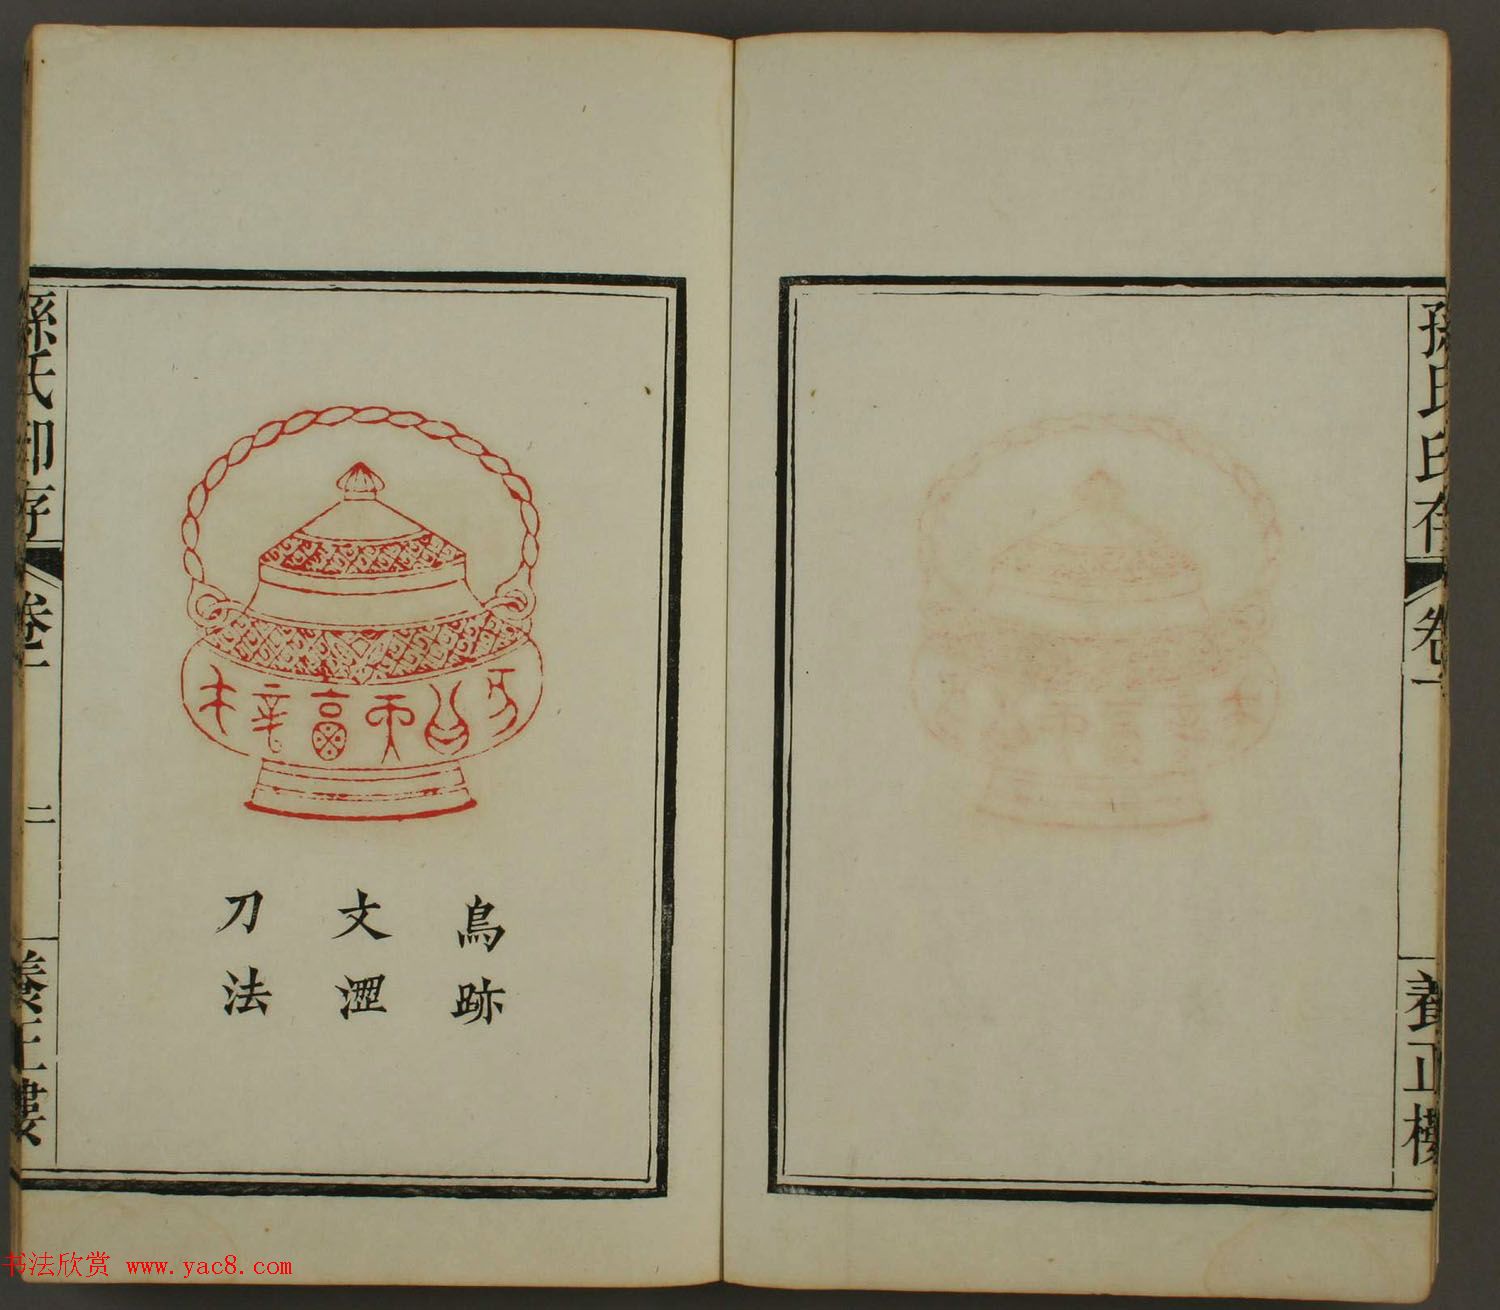 孫氏印存
卷一
養正樓
鳥跡
文澀
刀法
孫氏印存
卷一
二
養正樓
书法欣赏 www.yac8.com